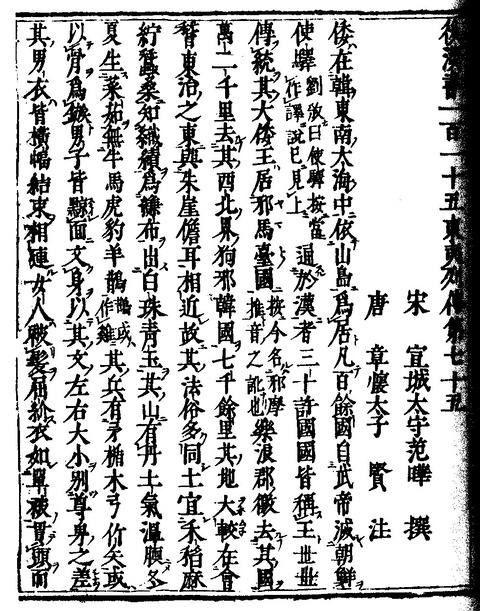 後漢書一百一十五東夷列傳第七十五
宋 宣城太守范曄 撰
唐 章懷太子 賢 注
倭在韓東南大海中依山島爲居凡百餘國自武帝滅朝鮮
使驛劉攽曰使驛按當作譯說已見上通於漢者三十許國國皆稱王世世
傳統其大倭王居邪馬臺國按今名邪摩推音之訛也樂浪郡徼去其國
萬二千里去其西北界狗邪韓國七千餘里其地大較在會
稽東治之東與朱崖儋耳相近故其法俗多同土宜禾稻麻
紵蠶桑知織績爲縑布出白珠青玉其山有丹土氣溫腝冬
夏生菜茹無牛馬虎豹羊鵲鵲或作雞其兵有矛楯木弓竹矢或
以骨爲鏃男子皆黥面文身以其文左右大小別尊卑之差
其男衣皆橫幅結束相連女人被髮屈紒衣如單被貫頭而